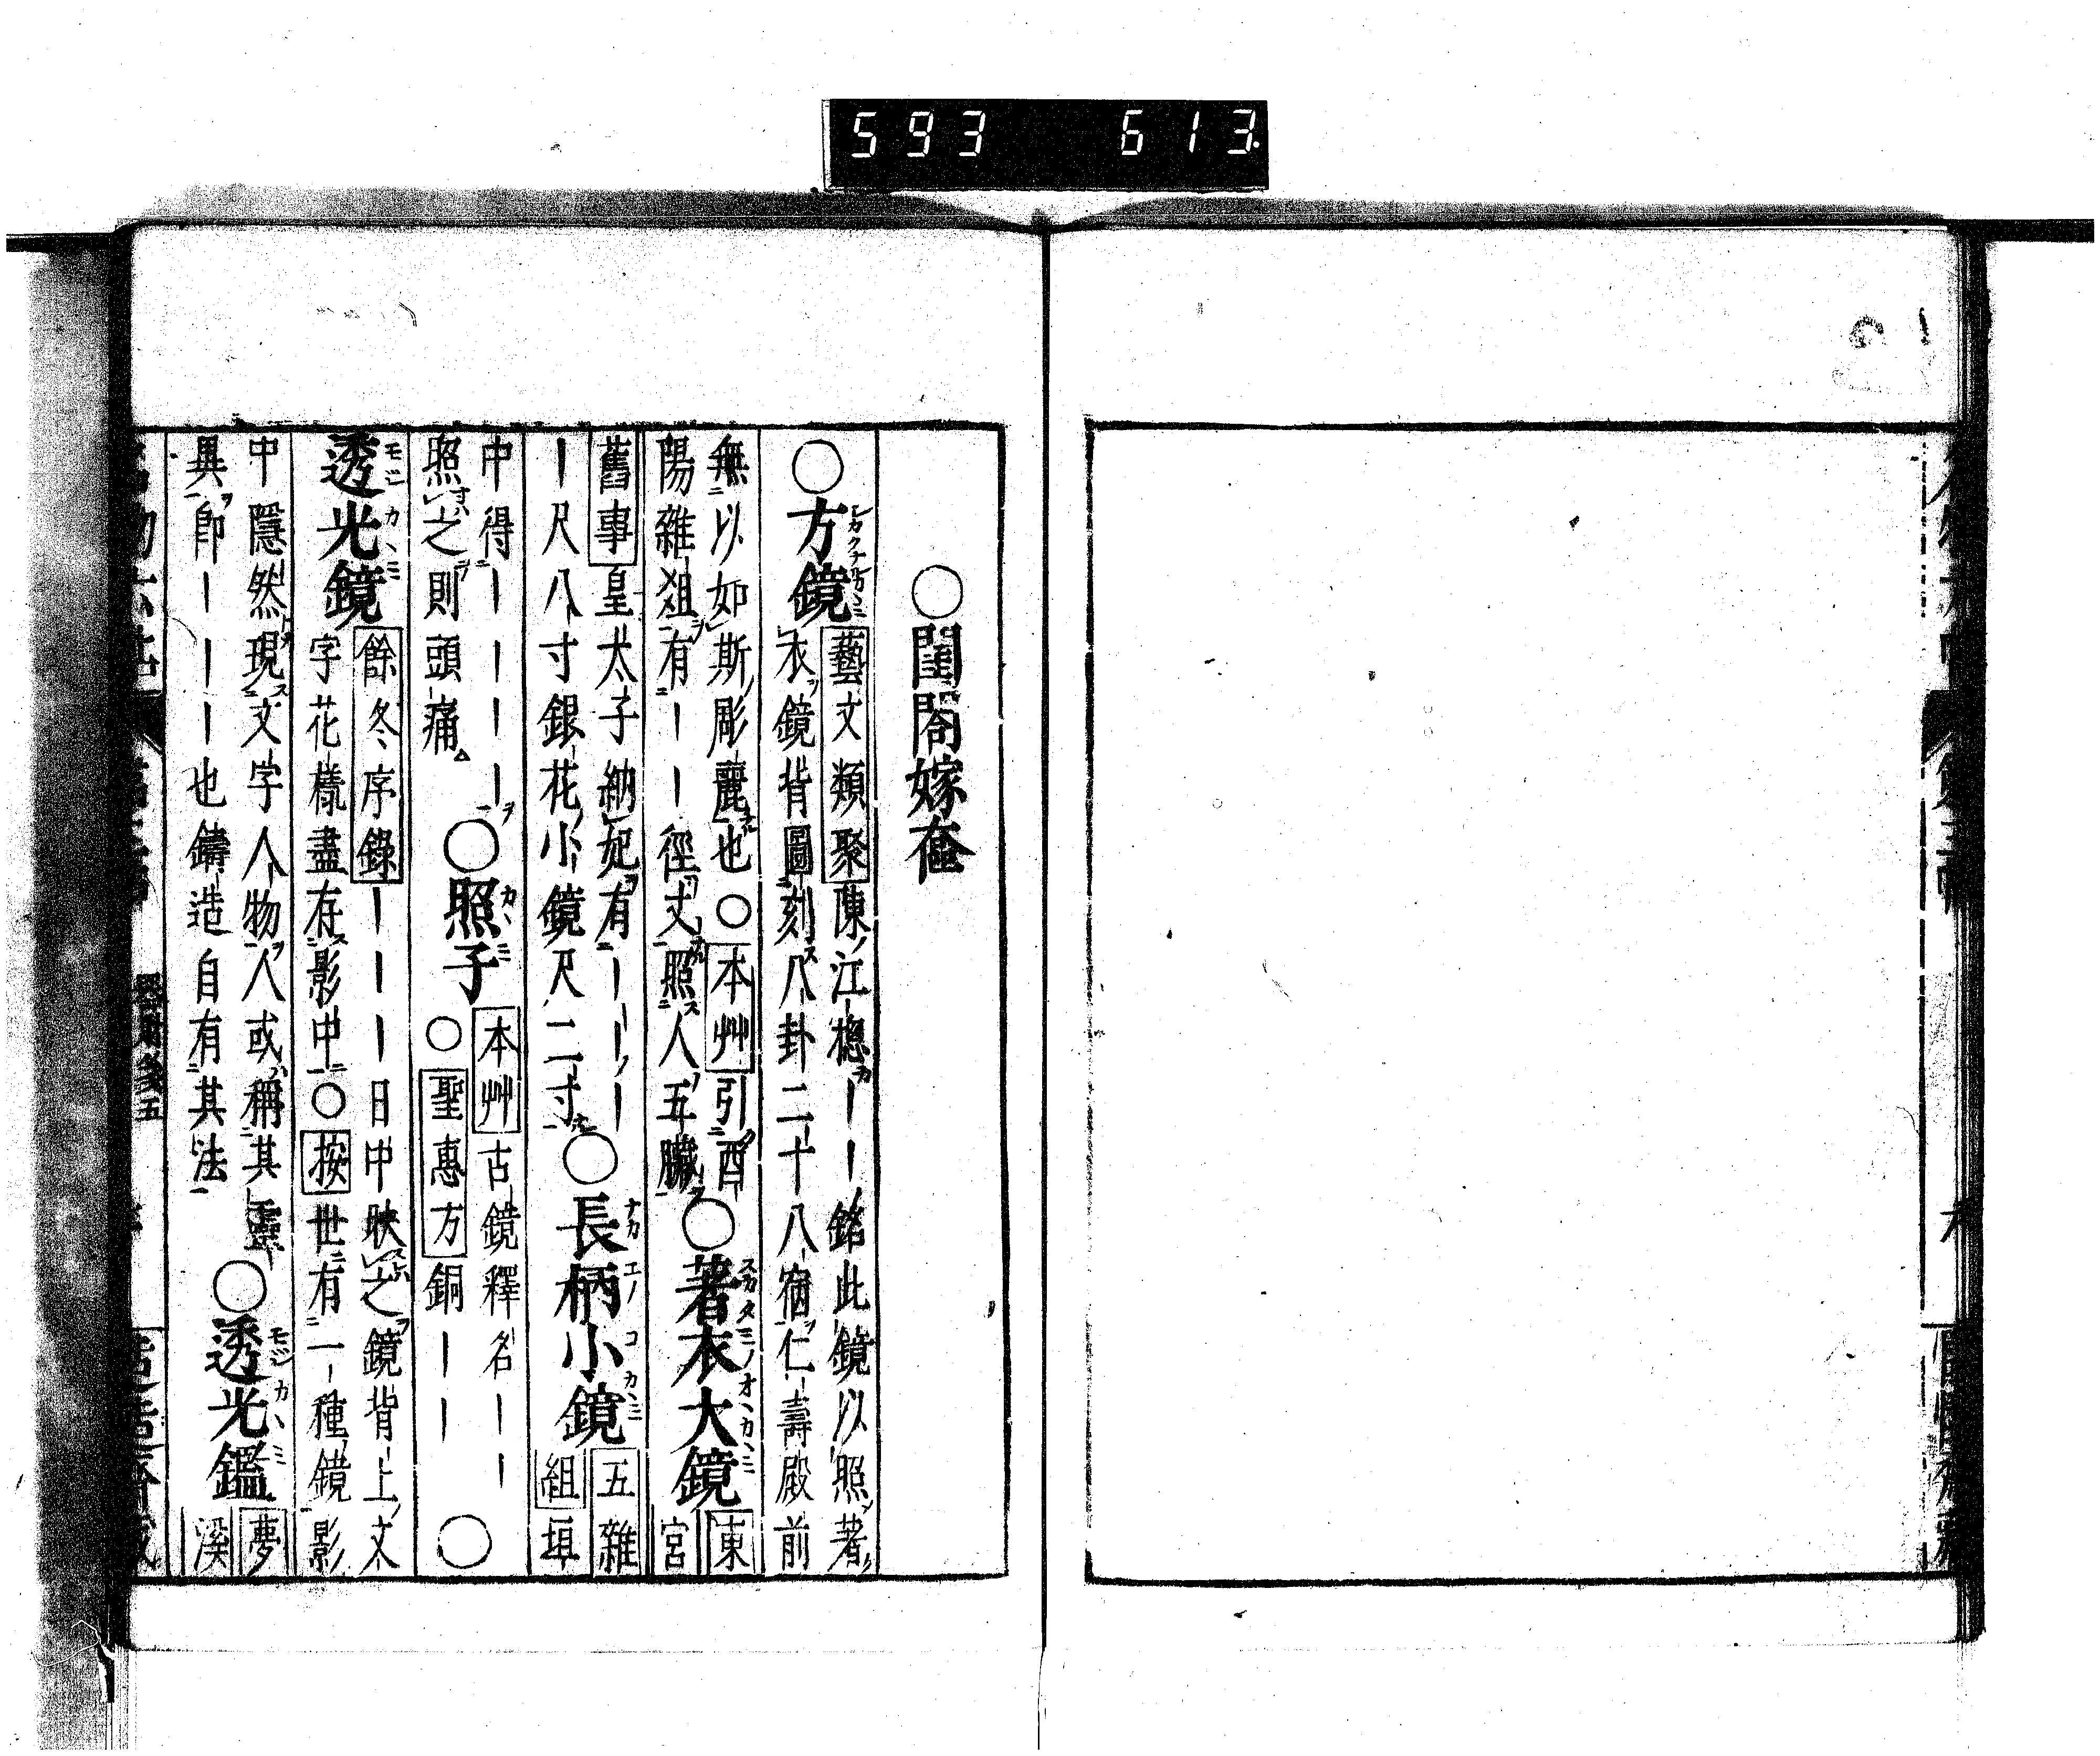 593 613
○閨閤嫁奩
○方鏡 藝文類聚陳江總｜｜｜銘此鏡以照著
衣鏡背圖刻八卦二十八宿仁壽殿前
無以如斯彫麗也○本艸引酉
陽雜俎有｜｜徑丈照人五臟
○著衣大鏡 東
宮
舊事皇太子納妃有｜｜｜
｜尺八寸銀花小鏡尺二寸
○長柄小鏡 五雜
組垣
中得｜｜｜｜｜
照之則頭痛
○照子 本艸古鏡釋名｜｜
○聖惠方銅｜｜
○
透光鏡 餘冬序錄｜｜｜日中映之鏡背上文
字花樣盡存影中○按世有一種鏡影
中隱然現文字人物人或稱其靈
異即｜｜｜也鑄造自有其法
○透光鑑 夢
溪